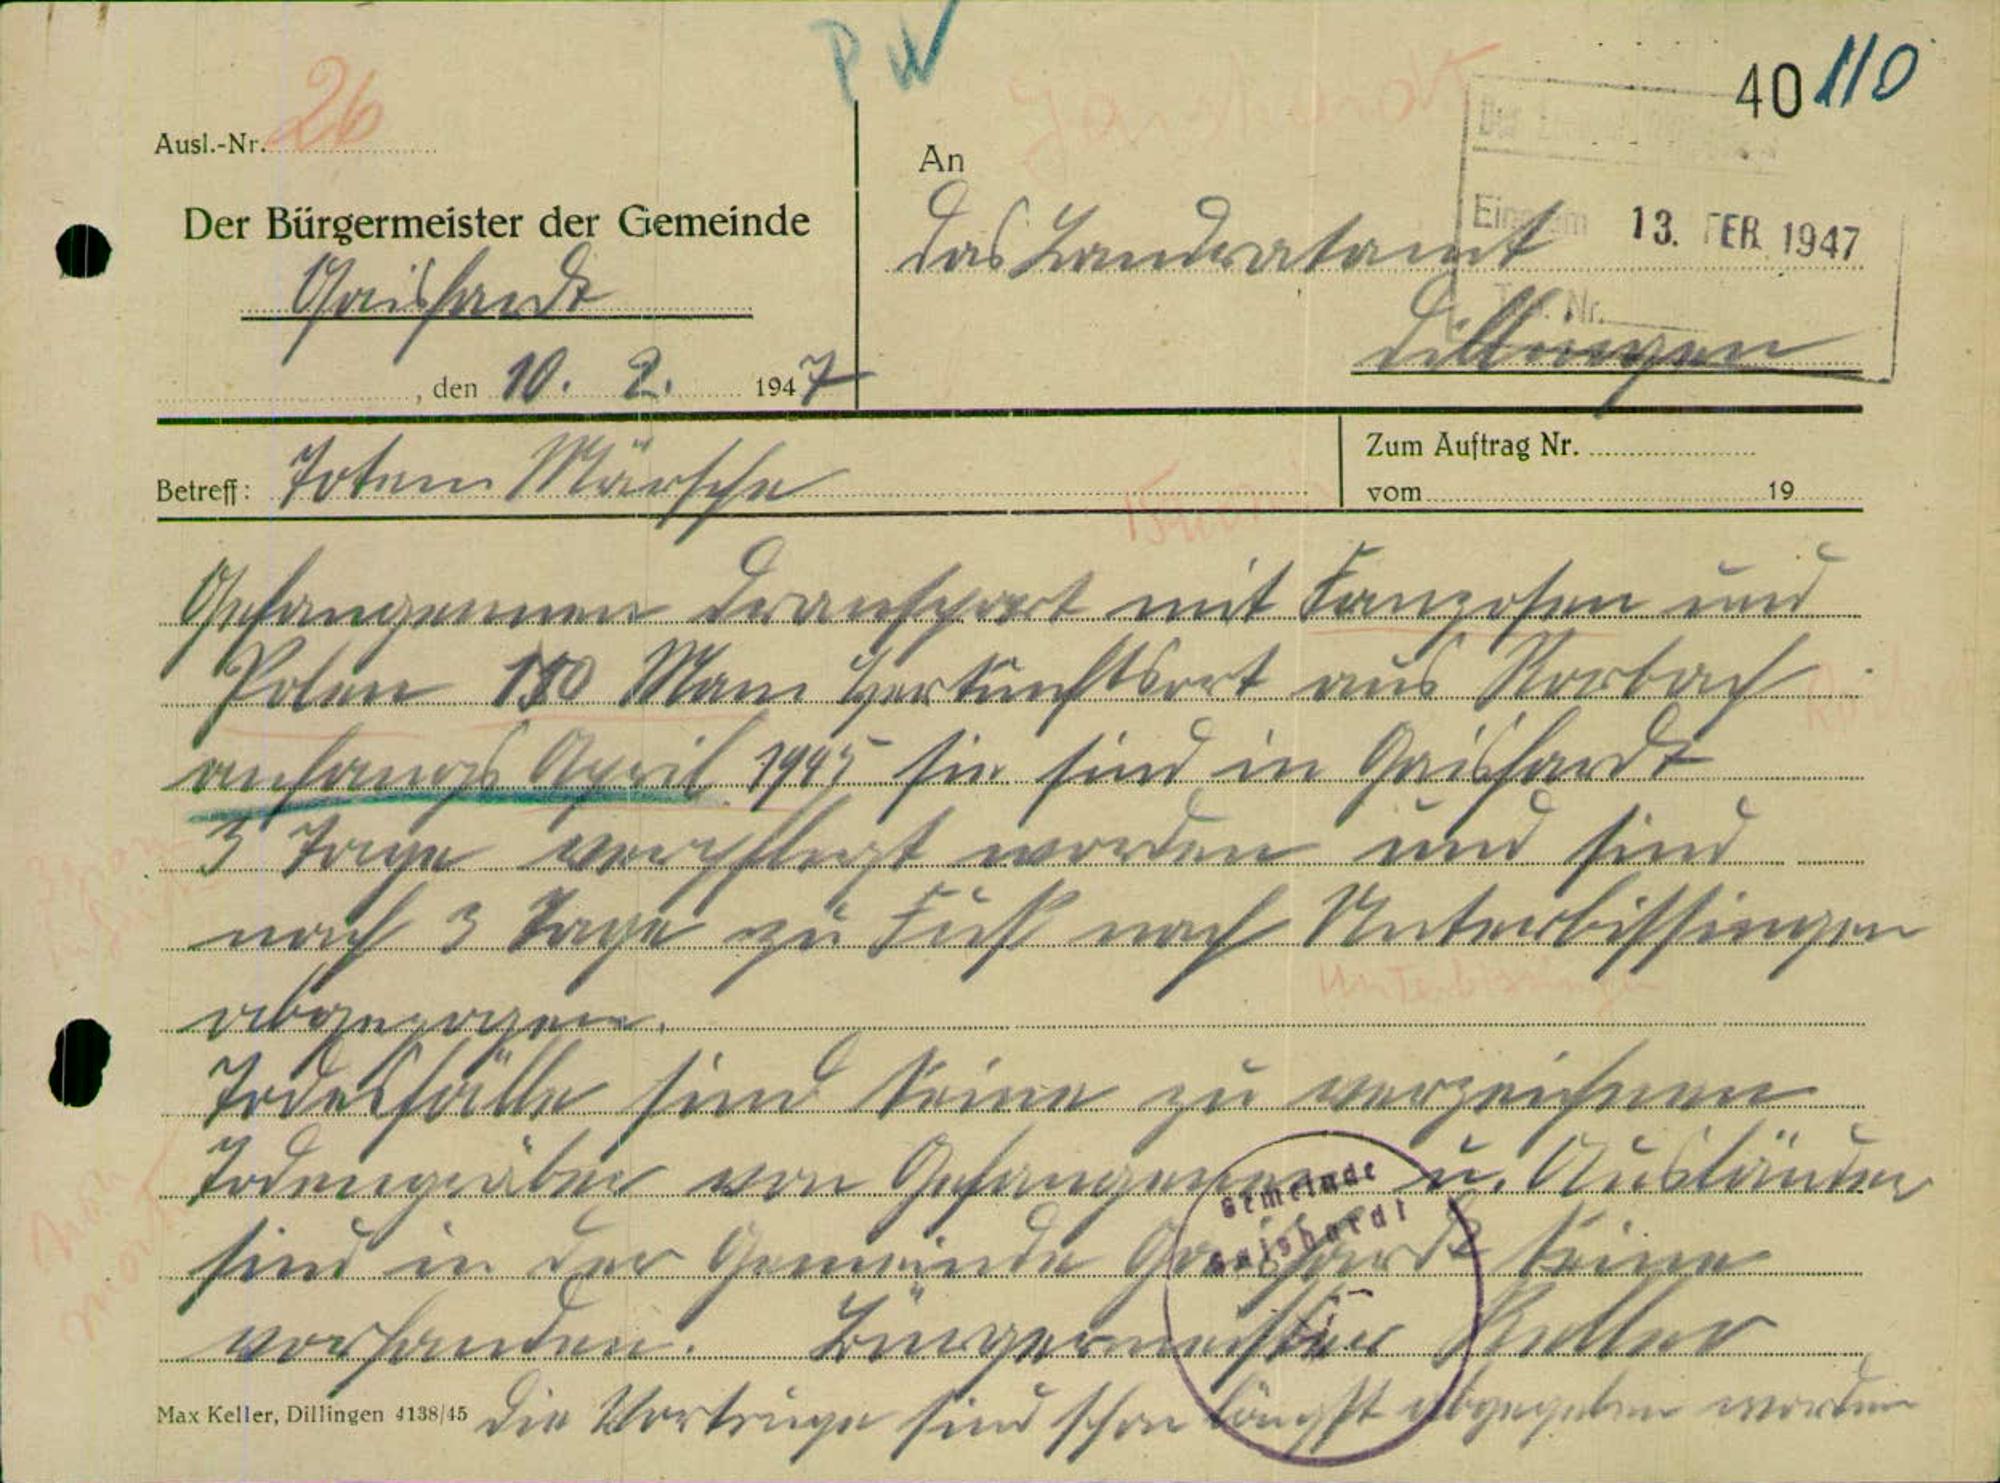 P W
40 110
Ausl.-Nr. 26
Der Bürgermeister der Gemeinde
Gaishardt
, den 10. 2. 1947
An
das Landratamt
Dillingen
13. FEB. 1947
Betreff: Toten Märsche
Zum Auftrag Nr.
vom 19
Gefangennen Dransport mit Fanzosen und
Polen 150 Mann Herkunftsort aus Korbach
anfangs April 1945 sie sind in Gaishardt
3 Tage verpflegt worden und sind
nach 3 Tage zu Fuß nach Unterbissingen
Unterbissingen
abgezogen.
Todesfälle sind keine zu verzeichnen
Todengräber von Gefangenen u. Ausländer
sind in der Gemeinde Gaishardt keine
vorhanden. Bürgermeister Keller
Gemeinde
Gaishardt
Max Keller, Dillingen 4138/45
die Vortrüge sind schon längst abgegeben worden